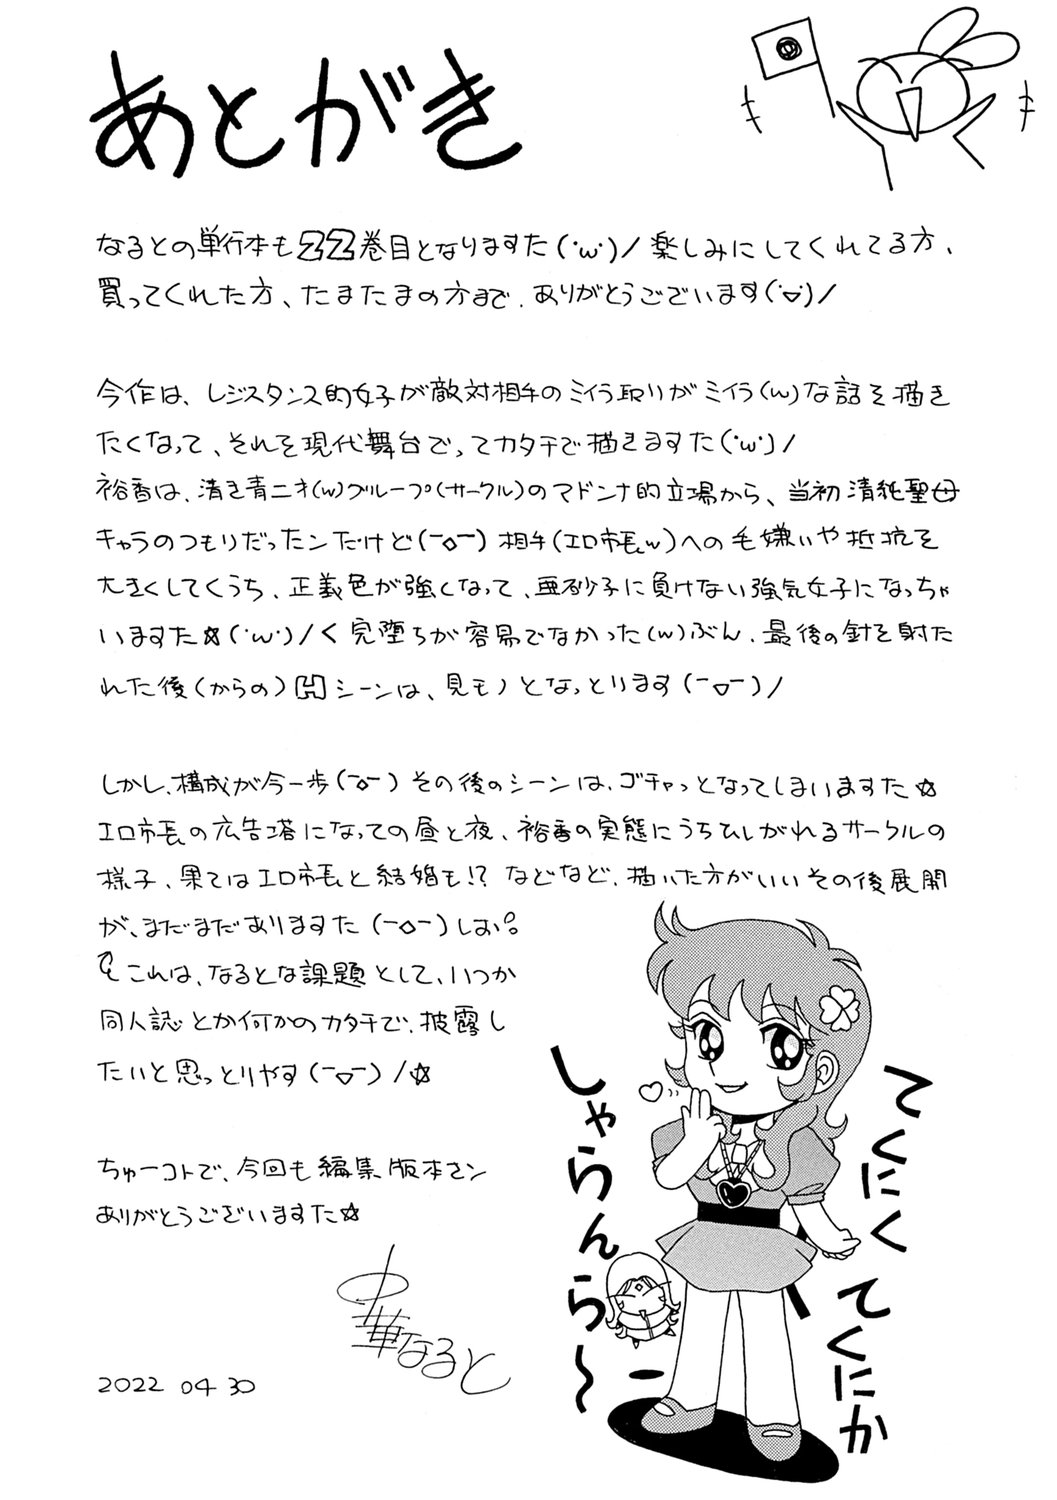 あとがき
なるとの単行本も22巻目となりますた(･ω･)ノ楽しみにしてくれてる方、
買ってくれた方、たまたまの方まで、ありがとうございます(･▽･)ノ
今作は、レジスタンス的女子が敵対相手のミイラ取りがミイラ(w)な話を描き
たくなって、それを現代舞台でってカタチで描きますた(･ω･)ノ
裕香は、清き青二才(w)グループ(サークル)のマドンナ的立場から、当初清純聖母
キャラのつもりだったンだけど(ｰ◇ｰ)相手(エロ市長w)への毛嫌いや抵抗を
大きくしてくうち、正義色が強くなって、亜砂子に負けない強気女子になっちゃ
いますた☆(･ω･)ノく完堕ちが容易でなかった(w)ぶん、最後の針を射た
れた後(からの)Hシーンは、見モノとなっとります(ｰ▽ｰ)ノ
しかし、構成が今一歩(ｰ◇ｰ)その後のシーンは、ゴチャっとなってしまいますた☆
エロ市長の広告塔になっての昼と夜、裕香の実態にうちひしがれるサークルの
様子、果てはエロ市長と結婚も!?などなど、描いた方がいいその後展開
が、まだまだありますた(ｰ◇ｰ)しお。
これは、なるとな課題として、いつか
同人誌とか何かのカタチで、披露し
たいと思っとりやす(ｰ▽ｰ)ノ☆
ちゅーコトで、今回も編集版本サン
ありがとうございますた☆
中華なると
2022 04 30
てくにく てくにか
しゃらんら〜